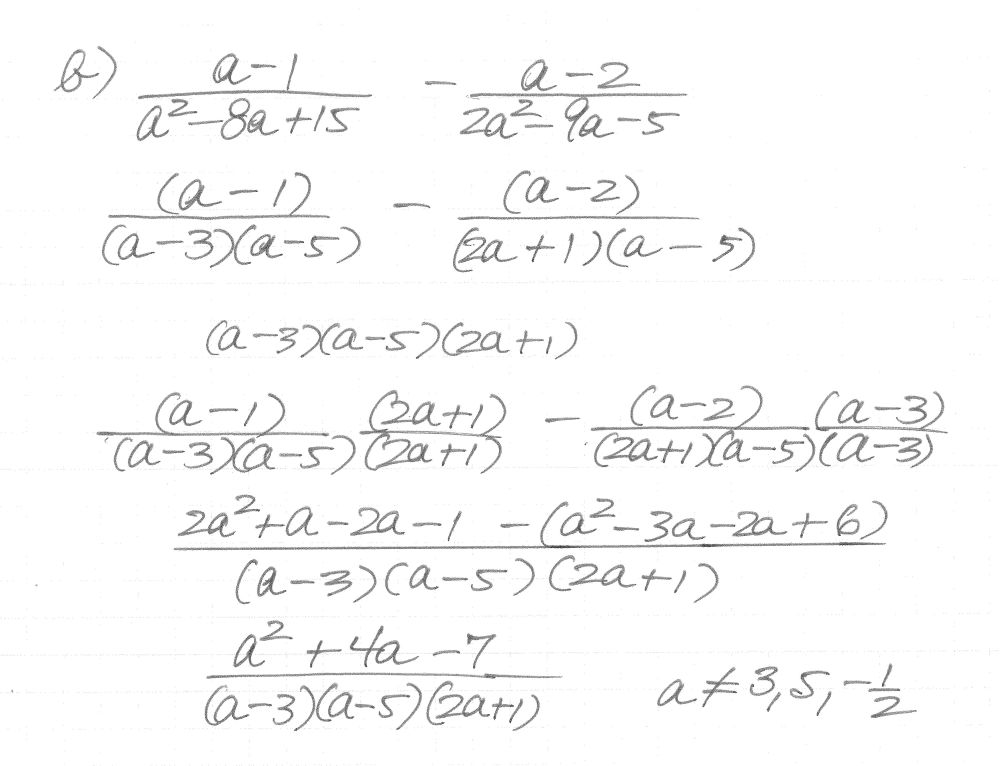 b) \frac{a-1}{a^2-8a+15} - \frac{a-2}{2a^2-9a-5}
\frac{(a-1)}{(a-3)(a-5)} - \frac{(a-2)}{(2a+1)(a-5)}
(a-3)(a-5)(2a+1)
\frac{(a-1)}{(a-3)(a-5)} \frac{(2a+1)}{(2a+1)} - \frac{(a-2)}{(2a+1)(a-5)} \frac{(a-3)}{(a-3)}
\frac{2a^2+a-2a-1-(a^2-3a-2a+6)}{(a-3)(a-5)(2a+1)}
\frac{a^2+4a-7}{(a-3)(a-5)(2a+1)} a≠3,5,-\frac{1}{2}